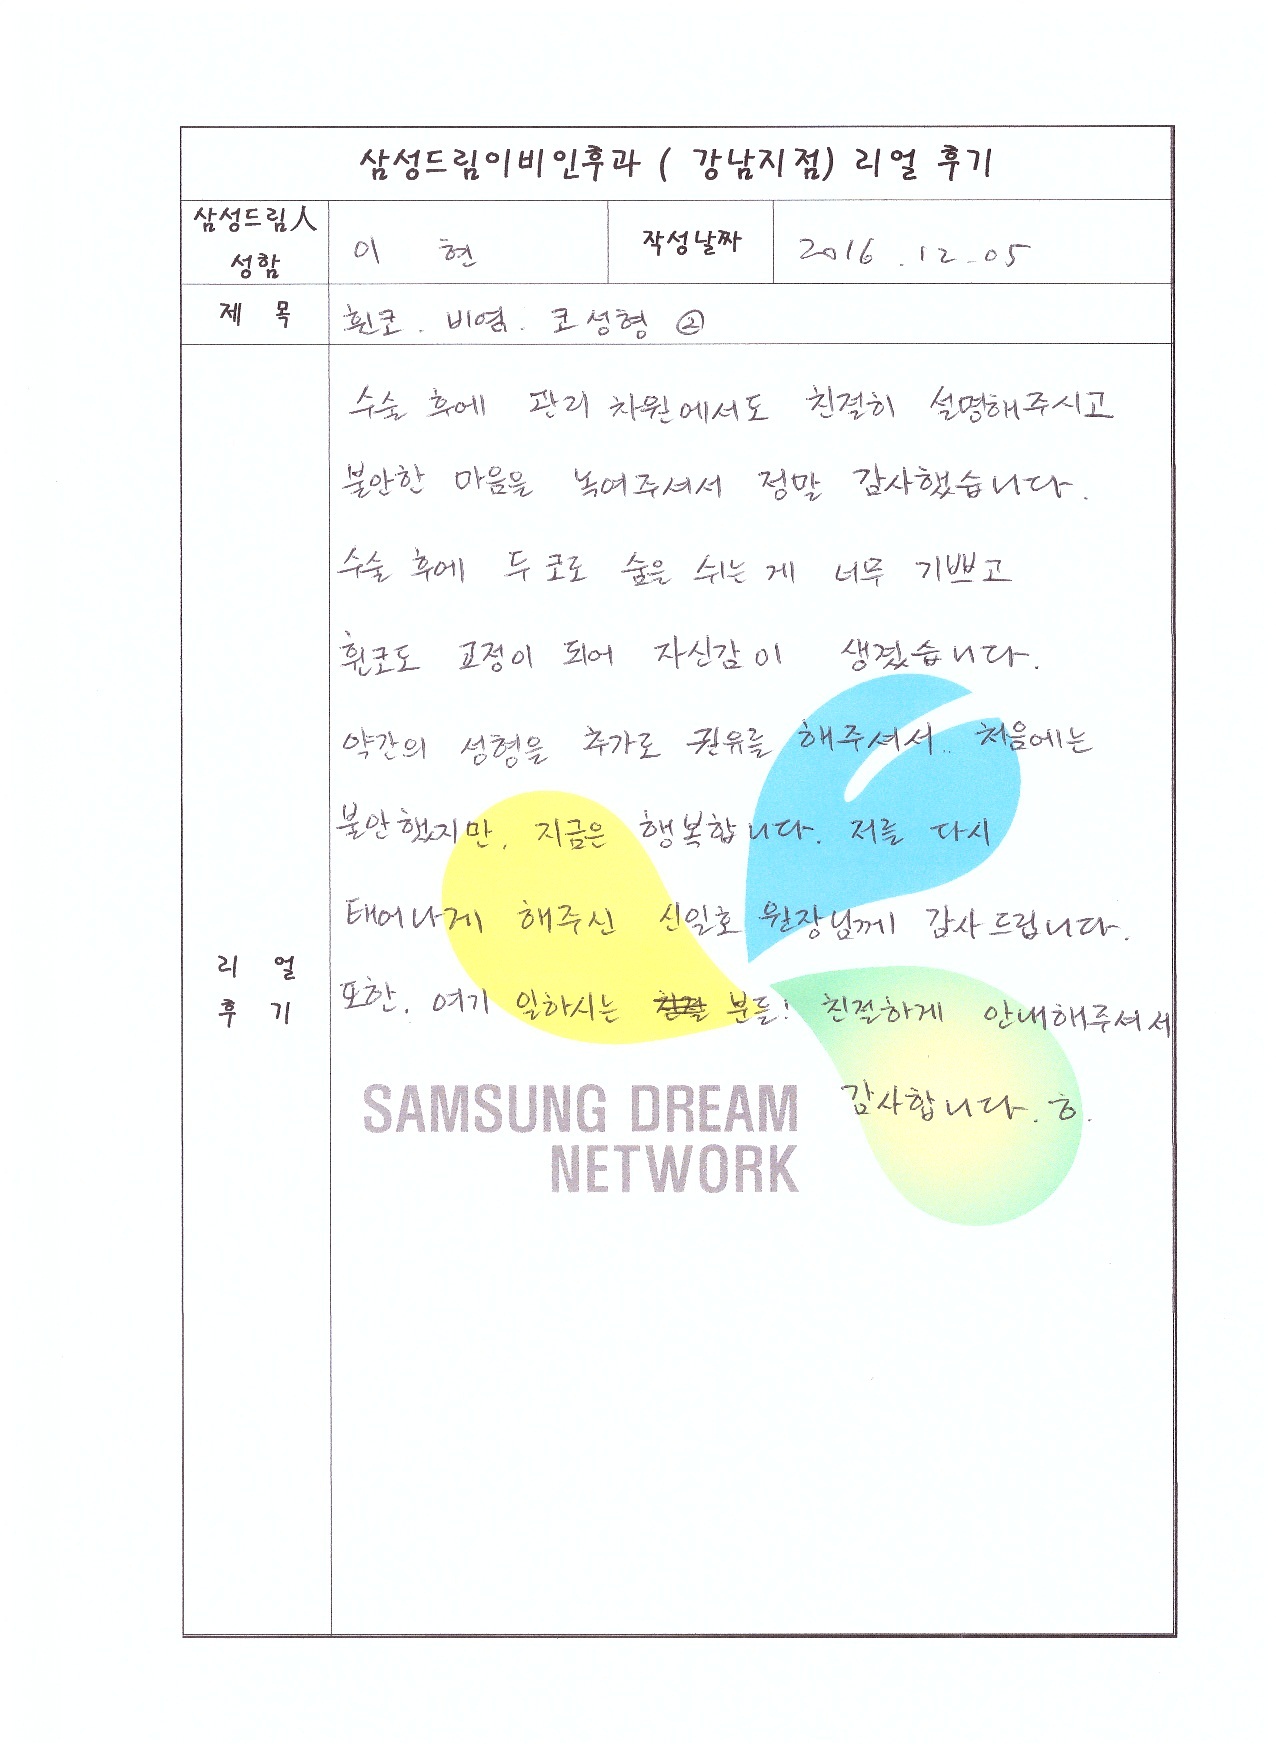 삼성드림이비인후과 ( 강남지점) 리얼 후기
삼성드림人 성함
이 현
작성날짜
2016 . 12 . 05
제 목
휜코 . 비염 . 코성형 ②
수술 후에 관리 차원에서도 친절히 설명해주시고
불안한 마음을 녹여주셔서 정말 감사했습니다.
수술 후에 두 코로 숨을 쉬는 게 너무 기쁘고
휜코도 교정이 되어 자신감이 생겼습니다.
약간의 성형을 추가로 권유를 해주셔서.. 처음에는
불안했지만, 지금은 행복합니다. 저를 다시
태어나게 해주신 신일호 원장님께 감사드립니다.
또한, 여기 일하시는 분들! 친절하게 안내해주셔서
감사합니다. ㅎ.
리 얼
후 기
SAMSUNG DREAM
NETWORK